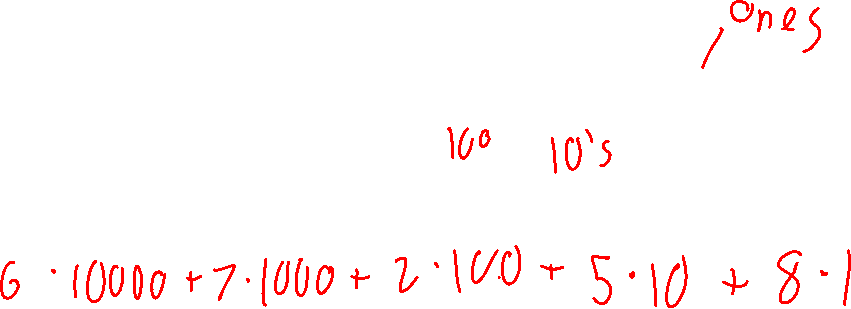 ones
100 10's
6 · 10000 + 7 · 1000 + 2 · 100 + 5 · 10 + 8 · 1